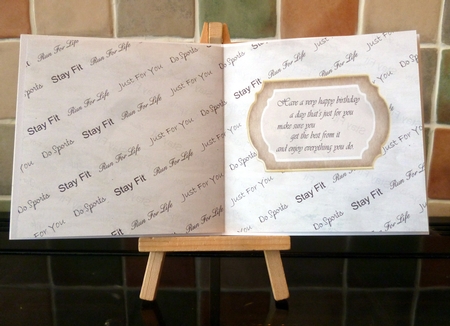 Run For Life
Stay Fit Run For Life
Do Sports Run For Life Just For You Do Sports
Stay Fit Do Sports Run For Life Just For You
You Do Sports Stay Fit Just For You Do Sports
Stay Fit Run For Life Just For You
Do Sports Stay Fit Run For Life
Just For You Do Sports Run For Life
Just For You
Stay Fit
Run For Life
Do Sports
Have a very happy birthday
a day that's just for you
make sure you
get the best from it
and enjoy everything you do.
Just For You
Do Sports Stay Fit Run For Life